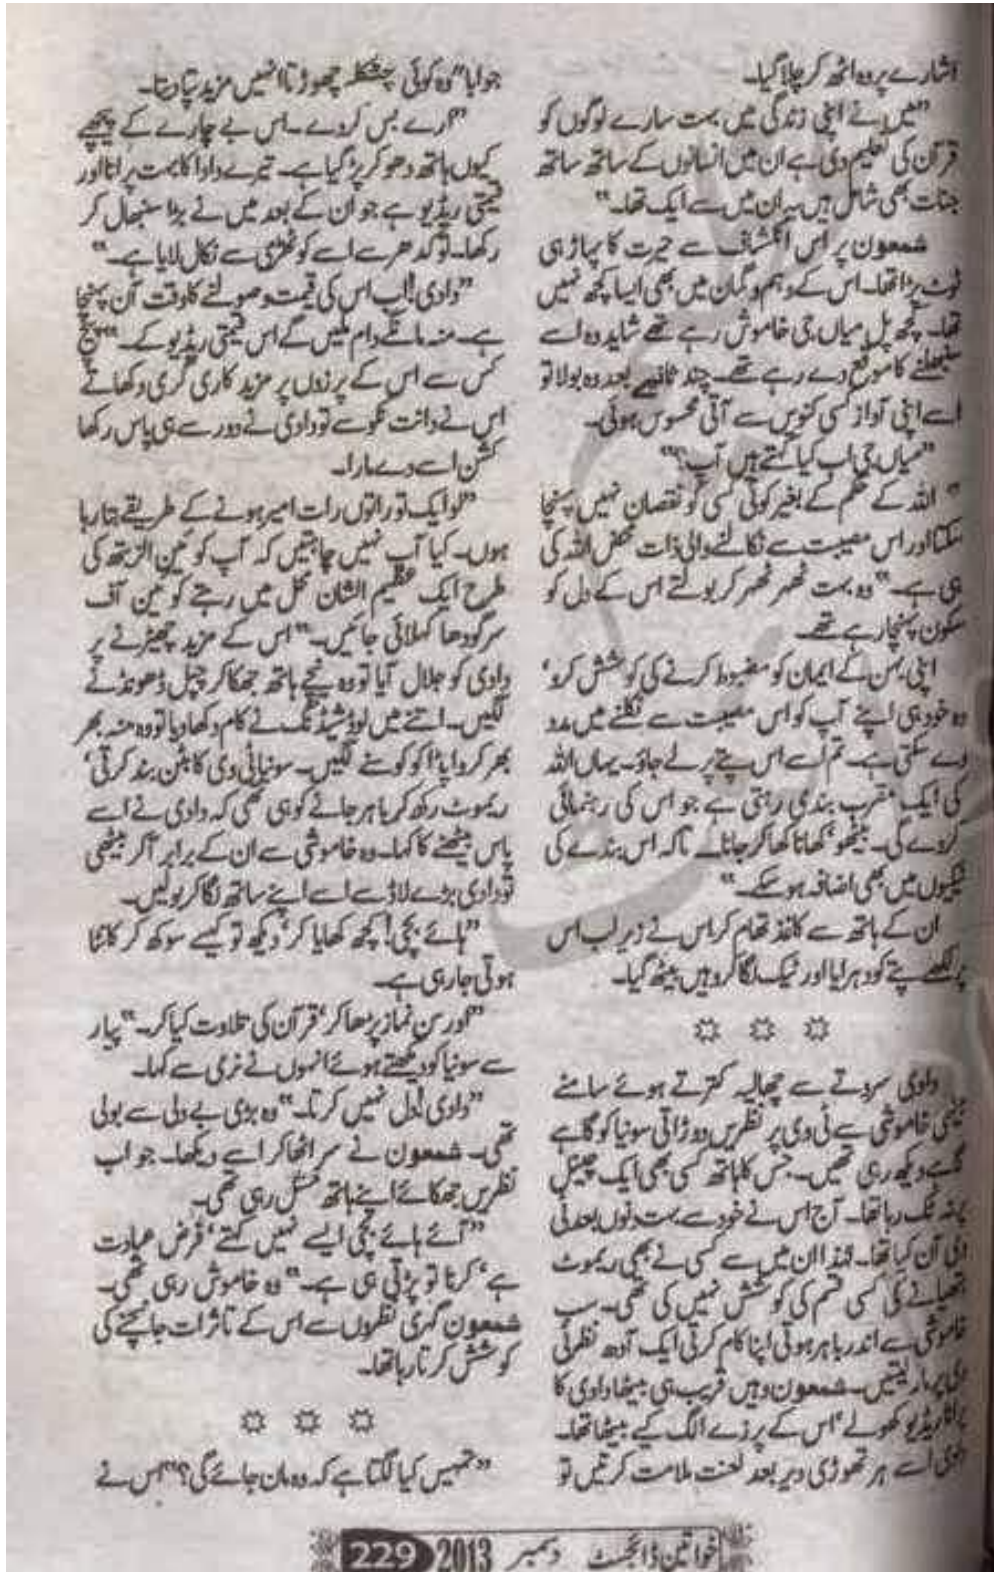 اشارے پر وہ اٹھ کر چلا گیا۔
”میں نے اپنی زندگی میں بہت سارے لوگوں کو
قرآن کی تعلیم دی ہے ان میں انسانوں کے ساتھ ساتھ
جنات بھی شامل ہیں یہ ان میں سے ایک تھا۔“
شمعون پر اس انکشاف سے حیرت کا پہاڑ ہی
ٹوٹ پڑا تھا۔ اس کے وہم و گمان میں بھی ایسا کچھ نہیں
تھا۔ کچھ پل میاں جی خاموش رہے تھے شاید وہ اسے
سنبھلنے کا موقع دے رہے تھے۔ چند ثانیے بعد وہ بولا تو
اسے اپنی آواز کسی کنویں سے آتی محسوس ہوئی۔
”میاں جی اب کیا کہتے ہیں آپ؟“
”اللہ کے حکم کے بغیر کوئی کسی کو نقصان نہیں پہنچا
سکتا اور اس مصیبت سے نکالنے والی ذات محض اللہ کی
ہی ہے۔“ وہ بہت ٹھہر ٹھہر کر بولتے اس کے دل کو
سکون پہنچا رہے تھے۔
اپنی بہن کے ایمان کو مضبوط کرنے کی کوشش کرو‘
وہ خود ہی اپنے آپ کو اس مصیبت سے نکلنے میں مدد
دے سکتی ہے۔ تم اسے اس پتے پر لے جاؤ۔ یہاں اللہ
کی ایک مقرب بندی رہتی ہے جو اس کی رہنمائی
کردے گی۔ بیٹھو‘ کھانا کھا کر جانا۔ تاکہ اس بندے کی
نیکیوں میں بھی اضافہ ہو سکے۔“
ان کے ہاتھ سے کاغذ تھام کر اس نے زیر لب اس
پر لکھے پتے کو دہرایا اور ٹیک لگا کر وہیں بیٹھ گیا۔
دادی سروتے سے چھالیہ کترتے ہوئے سامنے
بیٹھی خاموشی سے ٹی وی پر نظریں دوڑاتی سونیا کو گاہے
گاہے دیکھ رہی تھیں۔ جس کا ہاتھ کسی بھی ایک چینل
پر نہ ٹک رہا تھا۔ آج اس نے خود سے بہت دنوں بعد ٹی
وی آن کیا تھا۔ لہٰذا ان میں سے کسی نے بھی ریموٹ
ہتھیانے کی کسی قسم کی کوشش نہیں کی تھی۔ سب
خاموشی سے اندر باہر ہوتی اپنا کام کرتی ایک آدھ نظر ٹی
وی پر مار لیتیں۔ شمعون وہیں قریب ہی بیٹھا دادی کا
پرانا ریڈیو کھولے‘ اس کے پرزے الگ کیے بیٹھا تھا۔
دادی اسے ہر تھوڑی دیر بعد لعنت ملامت کرتیں تو
جواباً وہ کوئی چٹکلہ چھوڑتا انہیں مزید تپا دیتا۔
”ارے بس کردے۔ اس بے چارے کے پیچھے
کیوں ہاتھ دھو کر پڑ گیا ہے۔ تیرے دادا کا بہت پرانا اور
قیمتی ریڈیو ہے جو ان کے بعد میں نے بڑا سنبھال کر
رکھا۔ تو کدھر سے اسے کوٹھڑی سے نکال لایا ہے۔“
”دادی! اب اس کی قیمت وصولنے کا وقت آن پہنچا
ہے۔ منہ مانگے دام ملیں گے اس قیمتی ریڈیو کے۔“ پیچ
کس سے اس کے پرزوں پر مزید کاری گری دکھاتے
اس نے دانت نکوسے تو دادی نے دور سے ہی پاس رکھا
کشن اسے دے مارا۔
”لو ایک تو راتوں رات امیر ہونے کے طریقے بتا رہا
ہوں۔ کیا آپ نہیں چاہتیں کہ آپ کو کین الزبتھ کی
طرح ایک عظیم الشان محل میں رہتے کوئین آف
سرگودھا کہلائی جائیں۔“ اس کے مزید چھیڑنے پر
دادی کو جلال آیا تو وہ نیچے ہاتھ جھکا کر چپل ڈھونڈنے
لگیں۔ اتنے میں لوڈشیڈنگ نے کام دکھا دیا تو وہ منہ بھر
بھر کر واپڈا کو کوسنے لگیں۔ سونیا ٹی وی کا بٹن بند کرتی‘
ریموٹ رکھ کر باہر جانے کو ہی تھی کہ دادی نے اسے
پاس بیٹھنے کا کہا۔ وہ خاموشی سے ان کے برابر آکر بیٹھی
تو دادی بڑے لاڈ سے اسے اپنے ساتھ لگا کر بولیں۔
”ہائے بچی! کچھ کھایا کر‘ دیکھ تو کیسے سوکھ کر کانٹا
ہوتی جا رہی ہے۔
”اور سن نماز پڑھا کر‘ قرآن کی تلاوت کیا کر۔“ پیار
سے سونیا کو دیکھتے ہوئے انہوں نے نرمی سے کہا۔
”دادی! دل نہیں کرتا۔“ وہ بڑی بے دلی سے بولی
تھی۔ شمعون نے سر اٹھا کر اسے دیکھا۔ جو اب
نظریں جھکائے اپنے ہاتھ مسل رہی تھی۔
”آئے ہائے بچی ایسے نہیں کہتے‘ فرض عبادت
ہے‘ کرنا تو پڑتی ہی ہے۔“ وہ خاموش رہی تھی۔
شمعون گہری نظروں سے اس کے تاثرات جانچنے کی
کوشش کرتا رہا تھا۔
”تمہیں کیا لگتا ہے کہ وہ مان جائے گی؟“ اس نے
خواتین ڈائجسٹ دسمبر 2013 229